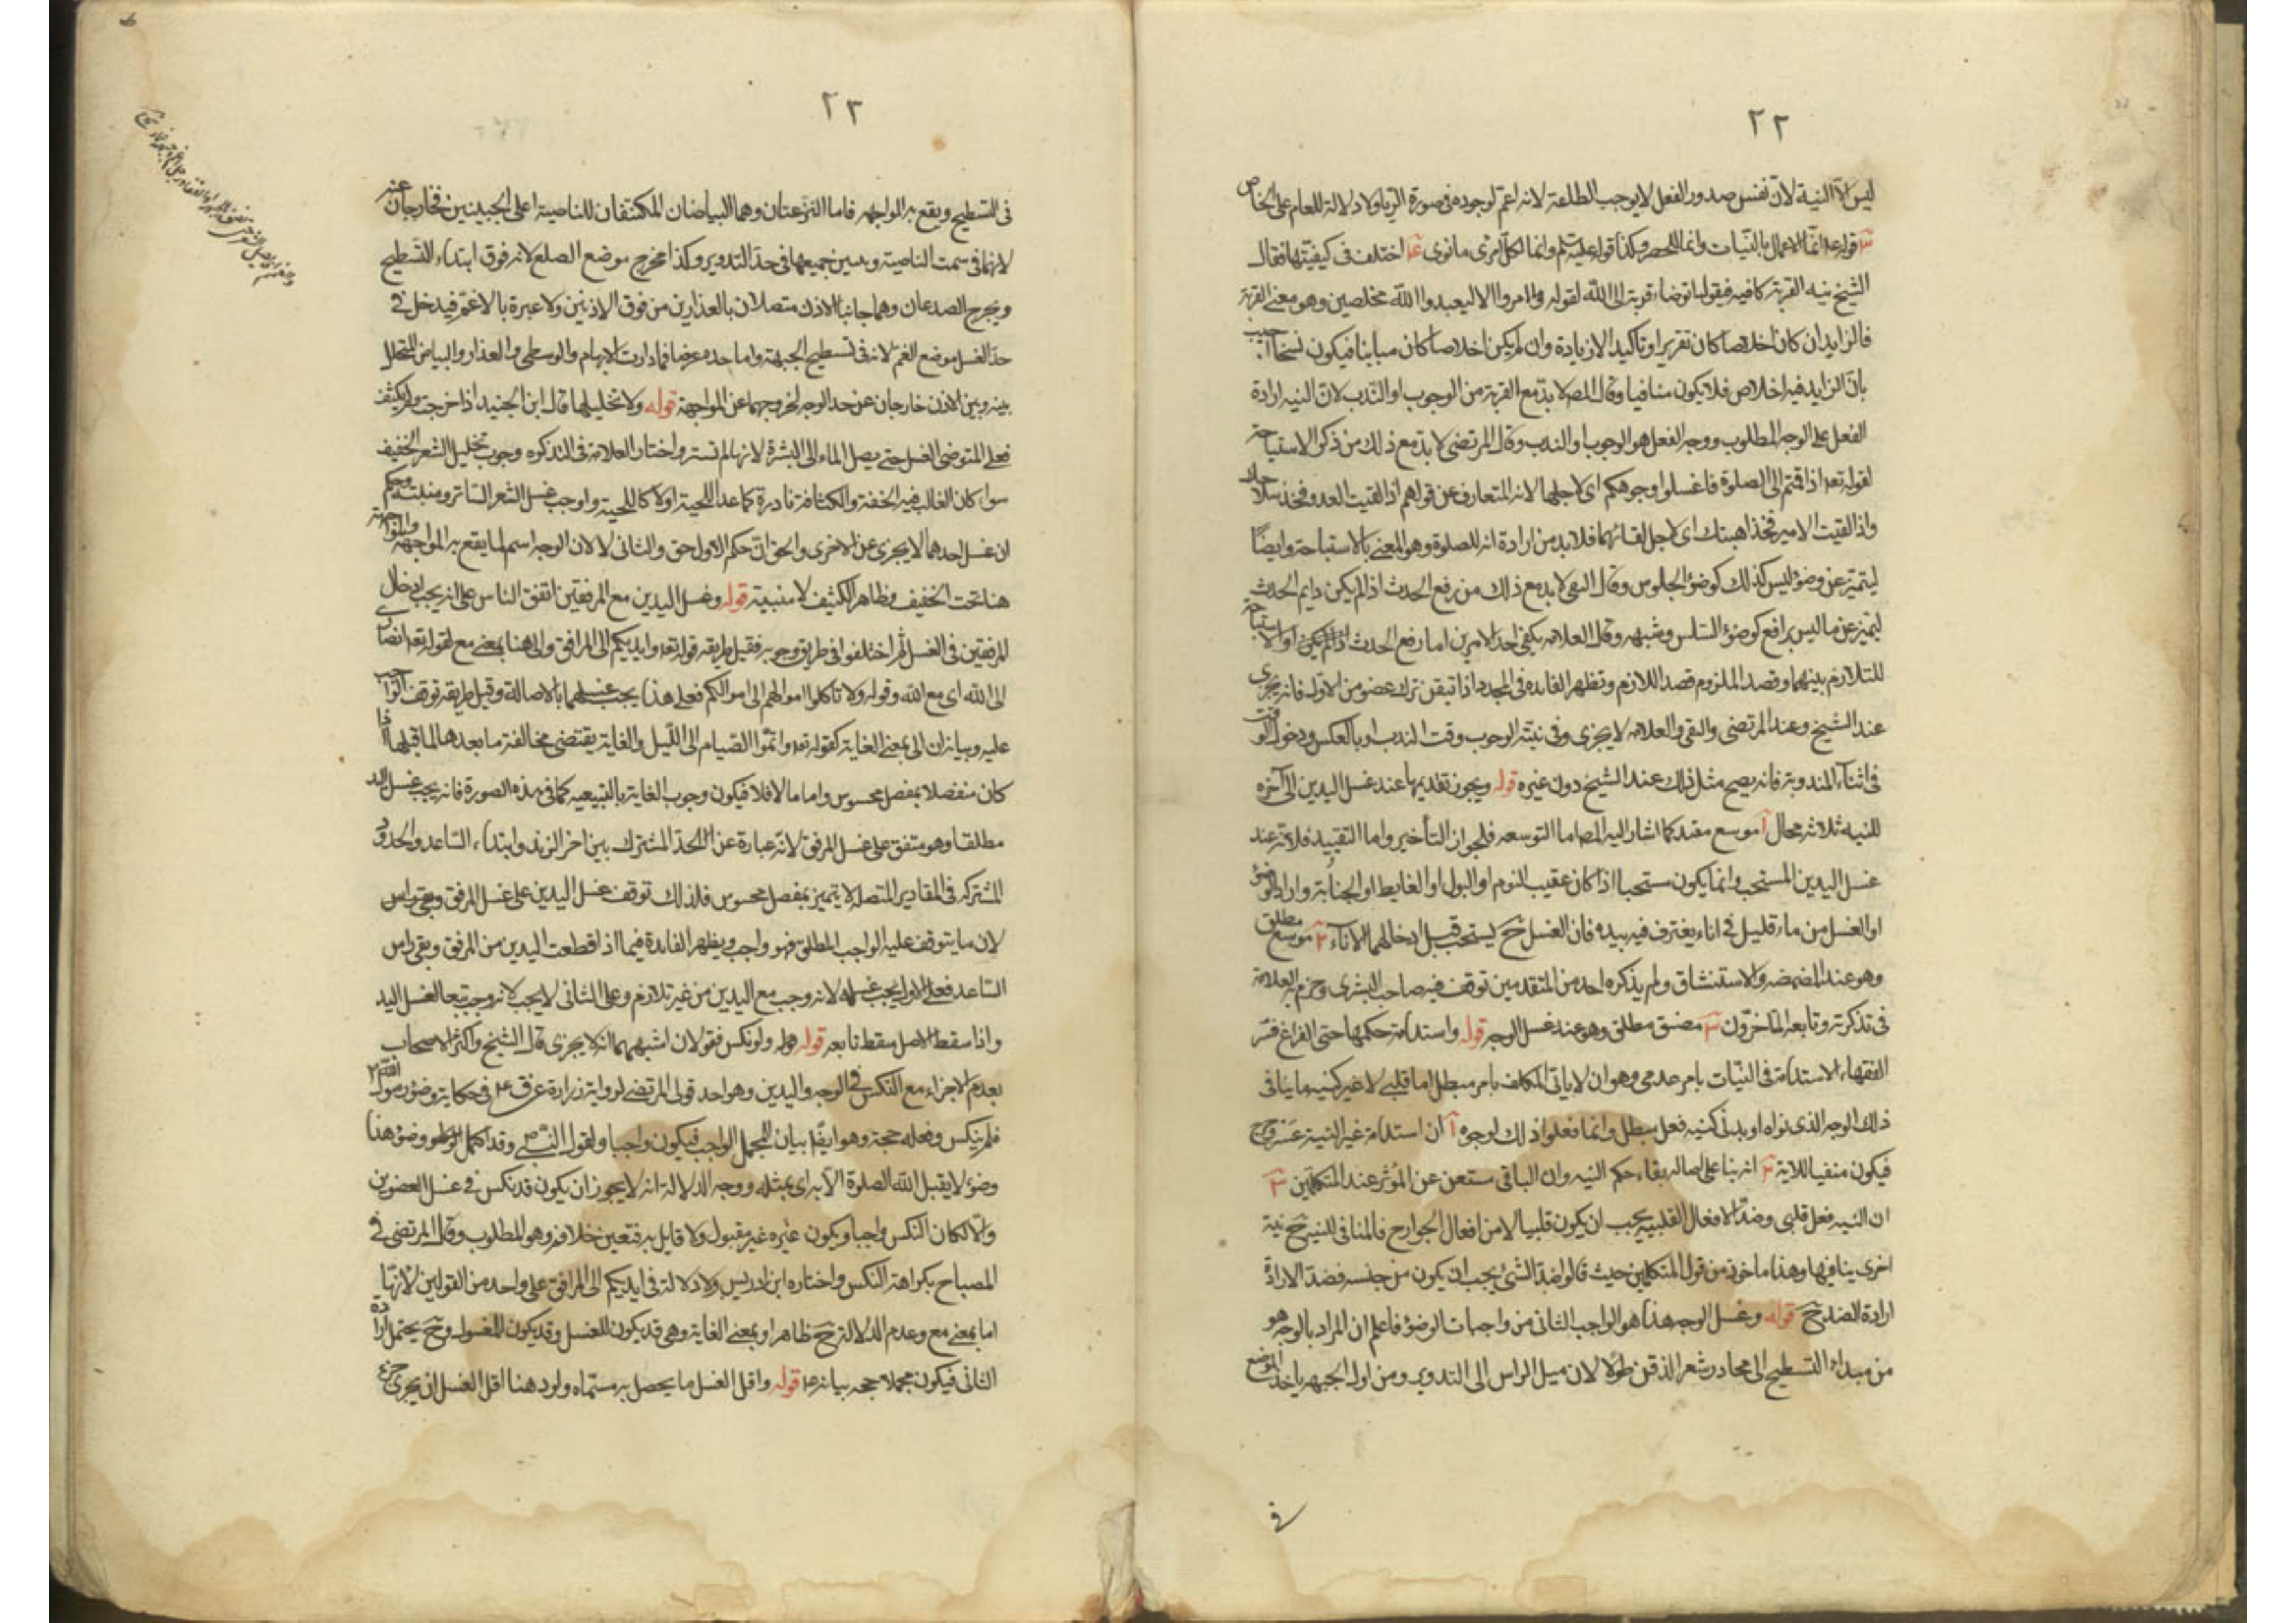 ٢٢
ليس الا النية لان نفس صدور الفعل لا يوجب الطاعة لانه اعم لوجوده فى صورة الريا ولا دلالة للعام على الخاص
٣ قوله انما الاعمال بالنيات وانما للحصر وكذا قوله وانما لكل امرئ ما نوى اختلف فى كيفيتها فقال
الشيخ نية القربة كافيه فيقول اتوضاء قربة الى الله لقوله وما امروا الا ليعبدوا الله مخلصين وهو معنى القربة
فالزايد ان كان اخلاصا كان تقريرا وتاكيدا لا زيادة وان لم يكن اخلاصا كان مباينا فيكون نسخا اجيب
بان الزايد فيه اخلاص فلا يكون منافيا وقال المص لا بد مع القربة من الوجوب او الندب لان النيه ارادة
الفعل على الوجه المطلوب ووجه الفعل هو الوجوب او الندب وقال المرتضى لا بد مع ذلك من ذكر الاستباحة
لقوله تعه اذا قمتم الى الصلوة فاغسلوا وجوهكم اى لاجلها لانه المتعارف عن قولهم اذا لقيت العدو فخذ سلاحك
واذا لقيت الامير فخذ اهبتك اى لاجل لقائهما فلا بد من ارادة انه للصلوة وهو المعنى بالاستباحة وايضا
ليتميز عن وضوء ليس كذلك كوضوء الجلوس وقال التقى لا بد مع ذلك من رفع الحدث اذا لم يكن دايم الحدث
ليتميز عن ما ليس برافع كوضوء السلس وشبهه وقال العلامه يكفى احد الامرين اما رفع الحدث او الاستباحة
للتلازم بينهما وقصد الملزوم قصد اللازم وتظهر الفايده فى المجدد اذا تيقن ترك عضو من الاول فانه يجزى
عند الشيخ وعند المرتضى والتقى والعلامه لا يجزى وفى نية الوجوب وقت الندب او بالعكس ودخول الوقت
فى اثناء المندوبة فانه يصح مثل ذلك عند الشيخ دون غيره قوله ويجوز تقديمها عند غسل اليدين الى آخره
للنيه ثلاثه محال آ موسع مقيد كما اشار اليه المص اما التوسعه فلجواز التأخير واما التقييد فلانه عند
غسل اليدين المستحب وانما يكون مستحبا اذا كان عقيب النوم او البول او الغايط او الجنابة واراد الوضوء
او الغسل من ماء قليل فى اناء يغترف فيه بيده فان الغسل ح يستحب قبل ادخالهما الاناء ٢ موسع مطلق
وهو عند المضمضه والاستنشاق ولم يذكره احد من المتقدمين توقف فيه صاحب البشرى وجزم به العلامة
فى تذكرته وتابعه المتاخرون ٣ مضيق مطلق وهو عند غسل الوجه قوله واستدامة حكمها حتى الفراغ فسر
الفقهاء الاستدامة فى النيات بامر عدمى وهو ان لا ياتى المكلف بامر مبطل اما قلبى لا غير كنيه ما ينافى
ذلك الوجه الذى نواه او بدنى كنيه فعل مبطل وانما فعلوا ذلك لوجوه آ ان استدامة غير النية عسر وحرج
فيكون منفيا للاية ٢ انه بناء على بقاء حكم النيه وان الباقى مستغن عن المؤثر عند المتكلمين ٣
ان النيه فعل قلبى وضد الافعال القلبيه يجب ان يكون قلبيا لا من افعال الجوارح فالمنافى للنيه ح نية
اخرى ينافيها وهذا ماخوذ من قول المتكلمين حيث قالوا ضد الشئ يجب ان يكون من جنسه فضد الارادة
ارادة الضد ح قوله وغسل الوجه هذا هو الواجب الثانى من واجبات الوضوء فاعلم ان المراد بالوجه هو
من مبداء التسطيح الى محادر شعر الذقن طولا لان ميل الراس الى التدوير ومن اول الجبهه ياخذ الموضع
فى
٢٣
فى التسطيح ويقع به المواجهه فاما النزعتان وهما البياضان المكتنفان للناصية اعلى الجبينين فخارجان عنه
لانهما فى سمت الناصية جميعها فى حد التدوير وكذا مخرج موضع الصلع لانه فوق ابتداء التسطيح
ويخرج الصدغان وهما جانبا الاذن متصلان بالعذارين من فوق الاذنين ولا عبرة بالاغم فيدخل فى
حد الغسل موضع الغمم لانه فى تسطيح الجبهة واما حده عرضا فما دارت الابهام والوسطى والعذار والبياض المتخلل
بينه وبين الاذن خارجان عن حد الوجه لخروجهما عن المواجهة قوله ولا تخليلها قال ابن الجنيد اذا خرجت ولم يكثف
فعلى المتوضى الغسل حتى يصل الماء الى البشرة لانها لم تستر واختار العلامة فى التذكره وجوب تخليل الشعر الخفيف
سواء كان الغالب فيه الخفة والكثافة نادرة كما عدا اللحية او لا كاللحية واوجب غسل الشعر الساتر ومنبته وحكم
ان غسل احدهما لا يجزى عن الاخرى والحق ان حكم الاول حق والثانى لا لان الوجه اسم لما يقع به المواجهه والمواجهة
هنا تحت الخفيف وظاهر الكثيف لا منبته قوله وغسل اليدين مع المرفقين اتفق الناس على انه يجب ادخال
المرفقين فى الغسل ثم اختلفوا فى طريق وجوبه فقيل طريقه قوله تعه وايديكم الى المرافق والى هنا بمعنى مع لقوله تعه انصارى
الى الله اى مع الله وقوله ولا تاكلوا اموالهم الى اموالكم فعلى هذا يجب غسلهما بالاصالة وقيل طريقه توقف الواجب
عليه وبيانه ان الى بمعنى الغاية كقوله تعه واتموا الصيام الى الليل والغاية يقتضى مخالفة ما بعدها لما قبلها اذا
كان منفصلا بمفصل محسوس واما ما لا فلا فيكون وجوب الغاية بالتبيعيه كما فى هذه الصورة فانه يجب غسل اليد
مطلقا وهو متفق على غسل المرفق لانه عبارة عن الحد المشترك بين اخر الزند وابتداء الساعد والحدود
المشتركه فى المقادير المتصله لا يتميز بمفصل محسوس فلذلك توقف غسل اليدين على غسل المرفق
لان ما يتوقف عليه الواجب المطلق فهو واجب ويظهر الفايدة فيما اذا قطعت اليدين من المرفق وبقى راس
الساعد فعلى الاول يجب غسله لانه وجب مع اليدين من غير تلازم وعلى الثانى لا يجب لانه وجب تبعا لغسل اليد
واذا سقط الاصل سقط تابعه قوله ولو نكس فقولان اشبههما انه لا يجزى قال الشيخ واكثر الاصحاب
بعدم الاجزاء مع النكس فى الوجه واليدين وهو احد قولى المرتضى لرواية زرارة عن ق ع فى حكاية وضوء رسول الله
فلم ينكس وفعله حجة وهو ايضا بيان للمجمل الواجب فيكون واجبا ولقول النبى ص وقد اكمل وضوءه هذا
وضوء لا يقبل الله الصلوة الا به اى بمثله ووجه الدلالة انه لا يجوز ان يكون قد نكس فى غسل العضوين
والا لكان النكس واجبا ويكون غيره غير مقبول ولا قايل به فتعين خلافه وهو المطلوب وقال المرتضى فى
المصباح بكراهة النكس واختاره ابن ادريس ولا دلالة فى ايديكم الى المرافق على واحد من القولين لانها
اما بمعنى مع وعدم الدلالة ح ظاهر او بمعنى الغاية وهى قد يكون للغسل وقد يكون للمغسول وح يحتمل ارادة
الثانى فيكون مجملا بيانه قوله واقل الغسل ما يحصل به مسماه ولو دهنا اقل الغسل ان يجرى جزء